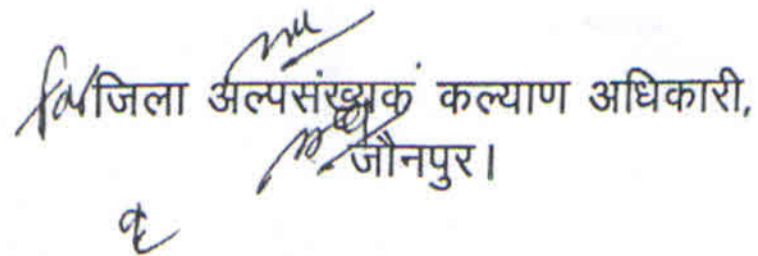 जिला अल्पसंख्यक कल्याण अधिकारी,
जौनपुर।